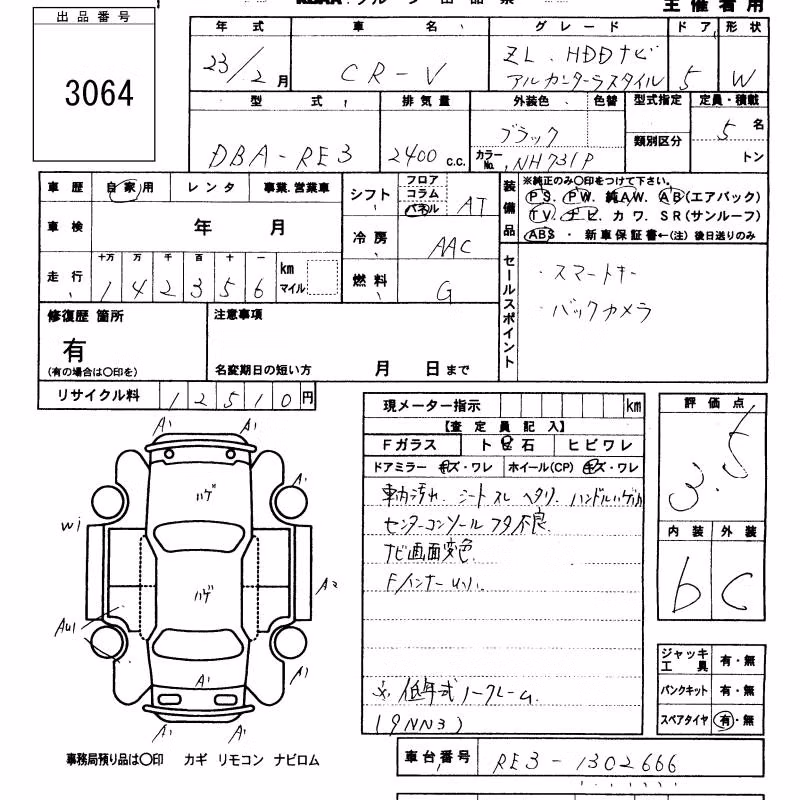 出品番号
3064
主催者用
年式 車名 グレード ドア 形状
23/2月 CR-V ZL HDDナビ アルカンターラスタイル 5 W
型式 排気量 外装色 色替 型式指定 定員・積載
類別区分
DBA-RE3 2400 c.c. ブラック 5 名
カラーNo. NH731P トン
車歴 自家用 レンタ 事業.営業車
車検 年 月
走行 十万 万 千 百 十 一 km マイル
1 4 2 3 5 6
シフト フロア コラム パネル AT
冷房 AAC
燃料 G
装備品 ※純正のみ〇印をつけて下さい。
PS. PW. 純AW. AB(エアバック)
TV. ナビ. カワ. SR(サンルーフ)
ABS ・ 新車保証書←(注) 後日送りのみ
セールスポイント
・スマートキー
・バックカメラ
修復歴 箇所
有
(有の場合は〇印を)
注意事項
名変期日の短い方 月 日まで
リサイクル料 12510円
現メーター指示 km
【査定員記入】
Fガラス トビ石 ヒビワレ
ドアミラー キズ・ワレ ホイール(CP) キズ・ワレ
車内汚れ シートスレ ヘタリ ハンドルハゲ
センターコンソールフタ不良
ナビ画面変色
※低年式ノークレーム
(9NN3)
評価点
3.5
内装 外装
b C
ジャッキ工具 有・無
パンクキット 有・無
スペアタイヤ 有・無
A1 A1
ハゲ
A1
W1
ハゲ
A2
AU1
A1
A1
A1 A1
事務局預り品は〇印 カギ リモコン ナビロム
車台番号 RE3-1302666